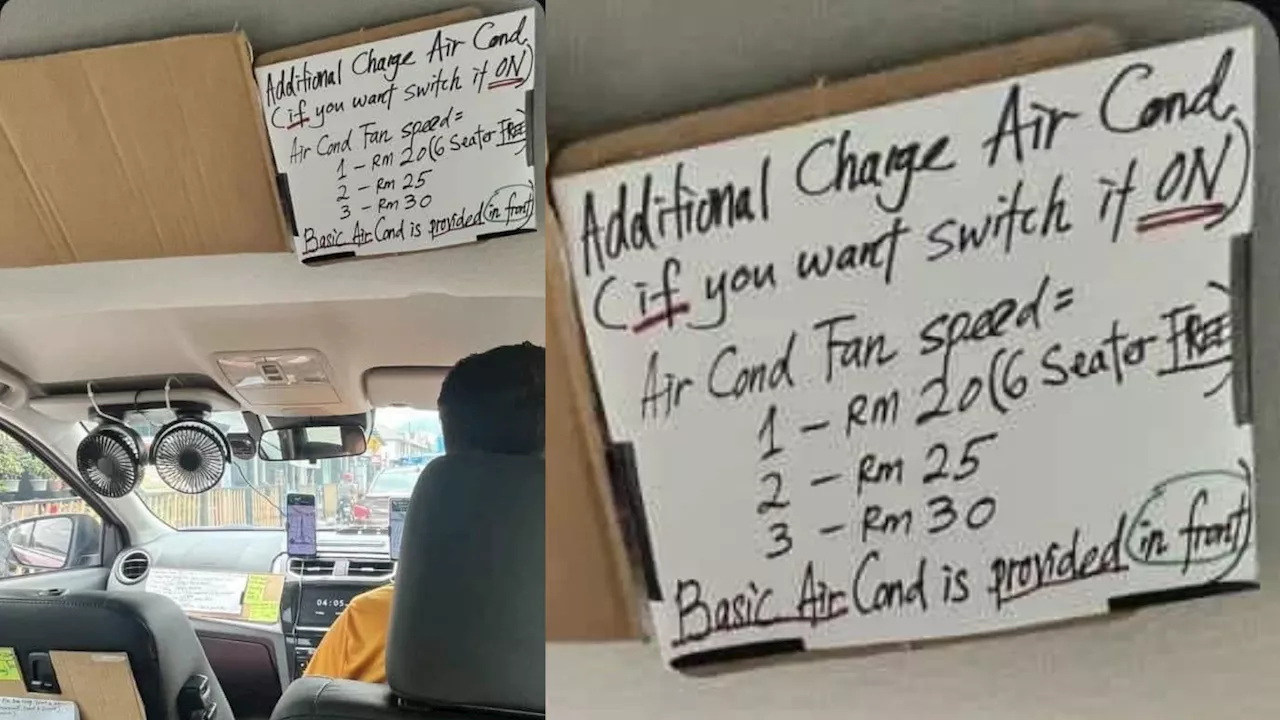 Additional Charge Air Cond
(if you want switch it ON)
Air Cond Fan speed=
1 - Rm 20(6 Seater FREE)
2 - Rm 25
3 - Rm 30
Basic Air Cond is provided (in front)
04:05
Additional Charge Air Cond
(if you want switch it ON)
Air Cond Fan speed=
1 - Rm 20(6 Seater FREE)
2 - Rm 25
3 - Rm 30
Basic Air Cond is provided (in front)